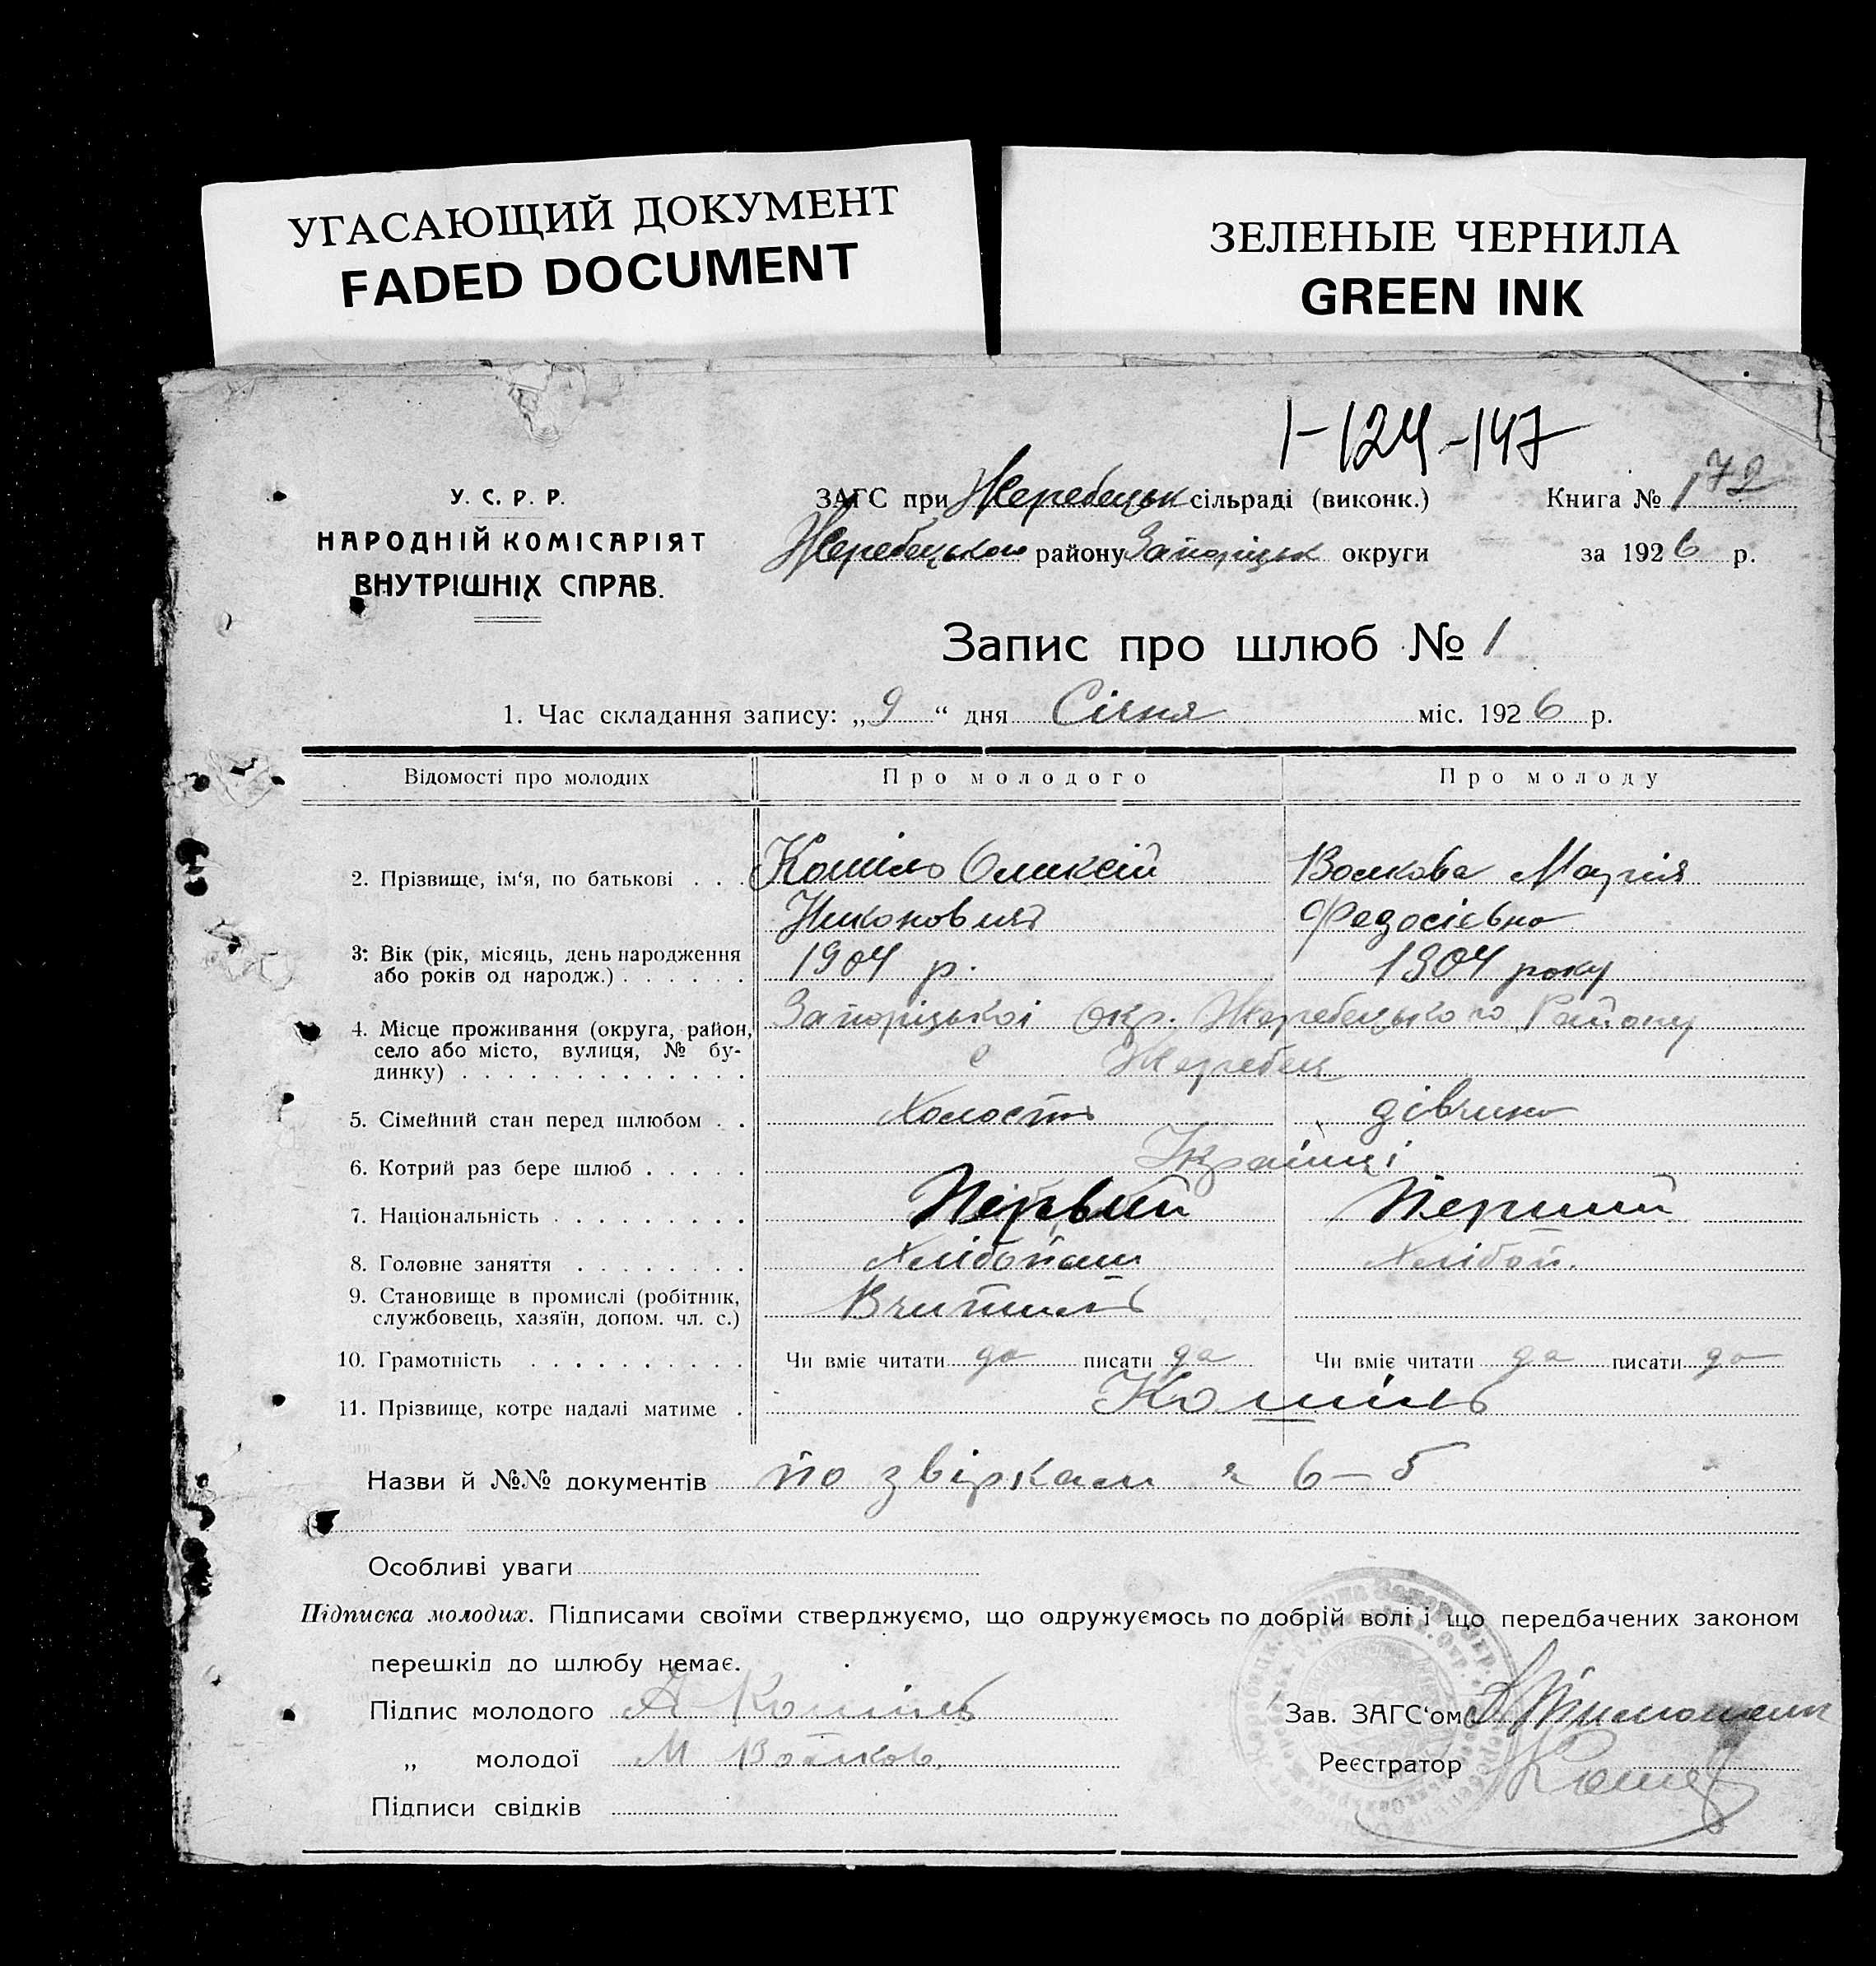 УГАСАЮЩИЙ ДОКУМЕНТ
FADED DOCUMENT
ЗЕЛЕНЫЕ ЧЕРНИЛА
GREEN INK
1-124-147
У. С. Р. Р.
НАРОДНІЙ КОМІСАРІЯТ
ВНУТРІШНІХ СПРАВ.
ЗАГС при Жеребецьк сільраді (виконк.)
Жеребецького району Запоріцьк округи
Книга № 172
за 1926 р.
Запис про шлюб № 1
1. Час складання запису: „9“ дня Січня міс. 1926 р.
Відомості про молодих Про молодого Про молоду
2. Прізвище, ім‘я, по батькові . . . Кошіль Оликсій Волкова Марія
Никонович Федосієвна
3. Вік (рік, місяць, день народження
або років од народж.) . . . . . . 1904 р. 1904 року
4. Місце проживання (округа, район,
село або місто, вулиця, № бу-
динку) . . . . . . . . . . . . . .
Запоріцької Окр. Жеребецького Району
с Жеребец
5. Сімейний стан перед шлюбом . . Холость дівчина
6. Котрий раз бере шлюб . . . . . Українці
7. Національність . . . . . . . . . Первий Перший
8. Головне заняття . . . . . . . . Хлібопаш Хлібоп.
9. Становище в промислі (робітник,
службовець, хазяїн, допом. чл. с.) Вчитиль
10. Грамотність . . . . . . . . . . Чи вміє читати да писати да Чи вміє читати да писати да
11. Прізвище, котре надалі матиме . Кошіль
Назви й №№ документів по звіркам 6-5
Особливі уваги
Підписка молодих. Підписами своїми стверджуємо, що одружуємось по добрій волі і що передбачених законом
перешкід до шлюбу немає.
Підпис молодого А Кошіль
„ молодої М Волков.
Підписи свідків
Зав. ЗАГС‘ом
Реєстратор